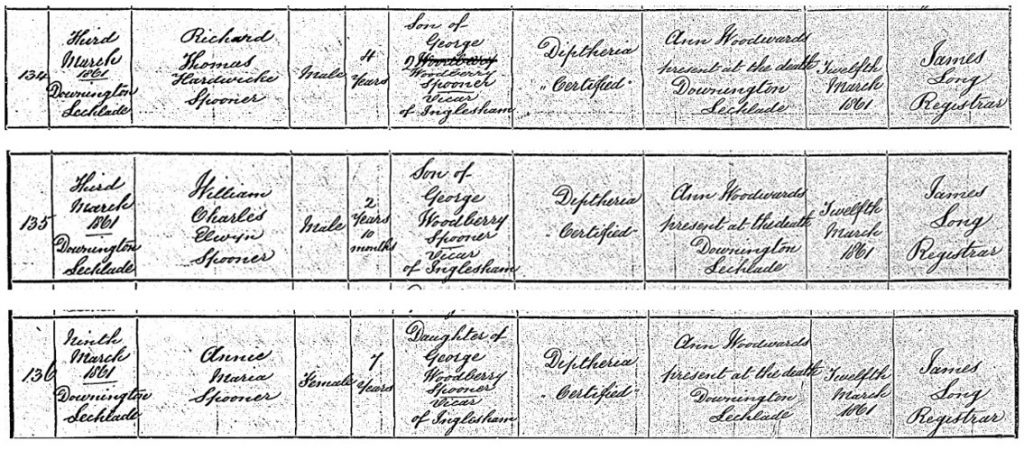 134
Third
March
1861
Downington
Lechlade
Richard
Thomas
Hardwicke
Spooner
Male
4
Years
Son of
George
Woodberry
Spooner
Vicar
of Inglesham
Diptheria
"Certified"
Ann Woodwards
present at the death
Downington
Lechlade
Twelfth
March
1861
James
Long
Registrar
135
Third
March
1861
Downington
Lechlade
William
Charles
Elwyn
Spooner
Male
2
Years
10
months
Son of
George
Woodberry
Spooner
Vicar
of Inglesham
Diptheria
"Certified"
Ann Woodwards
present at the death
Downington
Lechlade
Twelfth
March
1861
James
Long
Registrar
136
Ninth
March
1861
Downington
Lechlade
Annie
Maria
Spooner
Female
7
Years
Daughter of
George
Woodberry
Spooner
Vicar
of Inglesham
Diptheria
"Certified"
Ann Woodwards
present at the death
Downington
Lechlade
Twelfth
March
1861
James
Long
Registrar